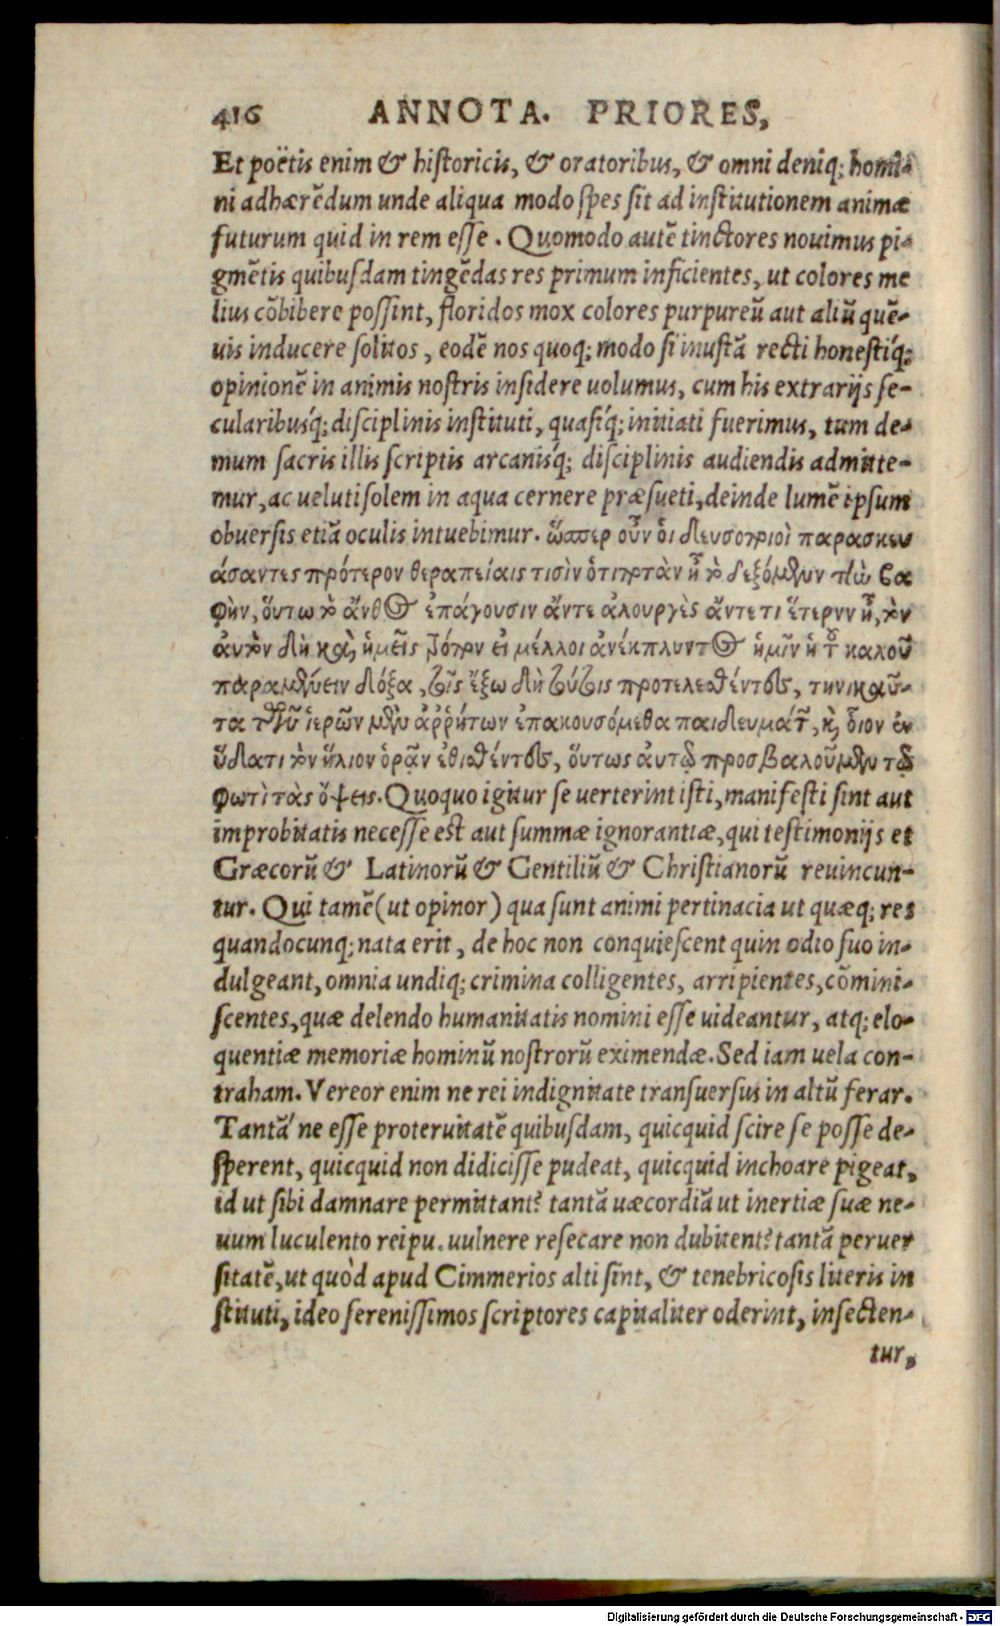 416 ANNOTA. PRIORES,
Et poëtis enim & historicis, & oratoribus, & omni deniq; homi-
ni adhærẽdum unde aliqua modo spes sit ad institutionem animæ
futurum quid in rem esse. Quomodo autẽ tinctores nouimus pi-
gmẽtis quibusdam tingẽdas res primum inficientes, ut colores me
lius cõbibere possint, floridos mox colores purpureũ aut aliũ quẽ-
uis inducere solitos, eodẽ nos quoq; modo si inustã recti honestíq;
opinionẽ in animis nostris insidere uolumus, cum his extrarijs se-
cularibusq́; disciplinis instituti, quasiq́; initiati fuerimus, tum de-
mum sacris illis scriptis arcanisq́; disciplinis audiendis admitte-
mur, ac ueluti solem in aqua cernere præsueti, deinde lumẽ ipsum
obuersis etiã oculis intuebimur. ὥσπερ οὖν ὁι δευσοποιοὶ παρασκευ
άσαντες πρότερον θεραπείαις τισὶν ὅτιποτὰν ᾖ τὸ δεξόμενον τὴν βα
φὴν, ὅυτω τὸ ἄνθος ἐπάγουσιν ἄντε ἁλουργὲς ἄντε τι ἕτερον ᾖ, τὸν
ἀυτὸν δὴ καὶ ἡμεῖς τρόπον εἰ μέλλοι ἀνέκπλυντος ἡμῖν ἡ τοῦ καλοῦ
παραμένειν δόξα, τοῖς ἔξω δὴ τούτοις προτελεσθέντες, τηνικαῦ-
τα τῶν ἱερῶν καὶ ἀῤῥήτων ἐπακουσόμεθα παιδευμάτων, καὶ οἷον ἐν
ὕδατι τὸν ἥλιον ὁρᾶν ἐθισθέντες, ὅυτως ἀυτῷ προσβαλοῦμεν τῷ
φωτὶ τὰς ὄψεις. Quoquo igitur se uerterint isti, manifesti sint aut
improbitatis necesse est aut summæ ignorantiæ, qui testimonijs et
Græcorũ & Latinorũ & Gentiliũ & Christianorũ reuincun-
tur. Qui tamẽ (ut opinor) qua sunt animi pertinacia ut quæq; res
quandocunq; nata erit, de hoc non conquiescent quin odio suo in-
dulgeant, omnia undiq; crimina colligentes, arripientes, cõmini-
scentes, quæ delendo humanitatis nomini esse uideantur, atq; elo-
quentiæ memoriæ hominũ nostrorũ eximendæ. Sed iam uela con-
traham. Vereor enim ne rei indignitate transuersus in altũ ferar.
Tantã ne esse proteruitatẽ quibusdam, quicquid scire se posse de-
sperent, quicquid non didicisse pudeat, quicquid inchoare pigeat,
id ut sibi damnare permittant? tantã uæcordiã ut inertiæ suæ ne-
uum luculento reipu. uulnere resecare non dubitent? tantã peruer
sitatẽ, ut quòd apud Cimmerios alti sint, & tenebricosis literis in
stituti, ideo serenissimos scriptores capitaliter oderint, insecten-
tur,
Digitalisierung gefördert durch die Deutsche Forschungsgemeinschaft - DFG